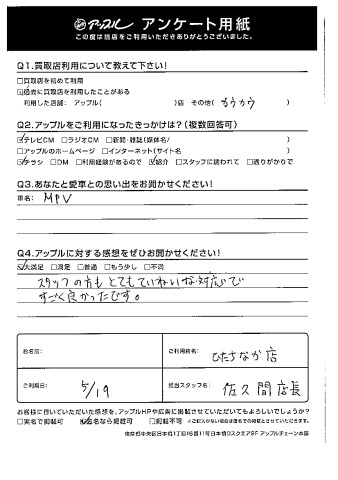 アップル アンケート用紙
この度は当店をご利用いただきありがとうございました。
Q1.買取店利用について教えて下さい!
□買取店を初めて利用
☑過去に買取店を利用したことがある
利用した店舗: アップル( )店 その他( カウカウ )
Q2.アップルをご利用になったきっかけは?(複数回答可)
☑テレビCM □ラジオCM □新聞・雑誌(媒体名/ )
□アップルのホームページ □インターネット(サイト名 )
☑チラシ □DM □利用経験があるので ☑紹介 □スタッフに誘われて □通りがかりで
Q3.あなたと愛車との思い出をお聞かせください!
車名: MPV
Q4.アップルに対する感想をぜひお聞かせください!
☑大満足 □満足 □普通 □もう少し □不満
スタッフの方もとてもていねいな対応で
すごく良かったです。
お名前:
ご利用店名: ひたちなか店
ご利用日: 5/19
担当スタッフ名: 佐久間店長
お客様に書いていただいた感想を、アップルHPや広告に掲載させていただいてもよろしいでしょうか?
□実名で掲載可 ☑仮名なら掲載可 □掲載不可 ※ご記入がない場合は仮名での掲載とさせていただきます。